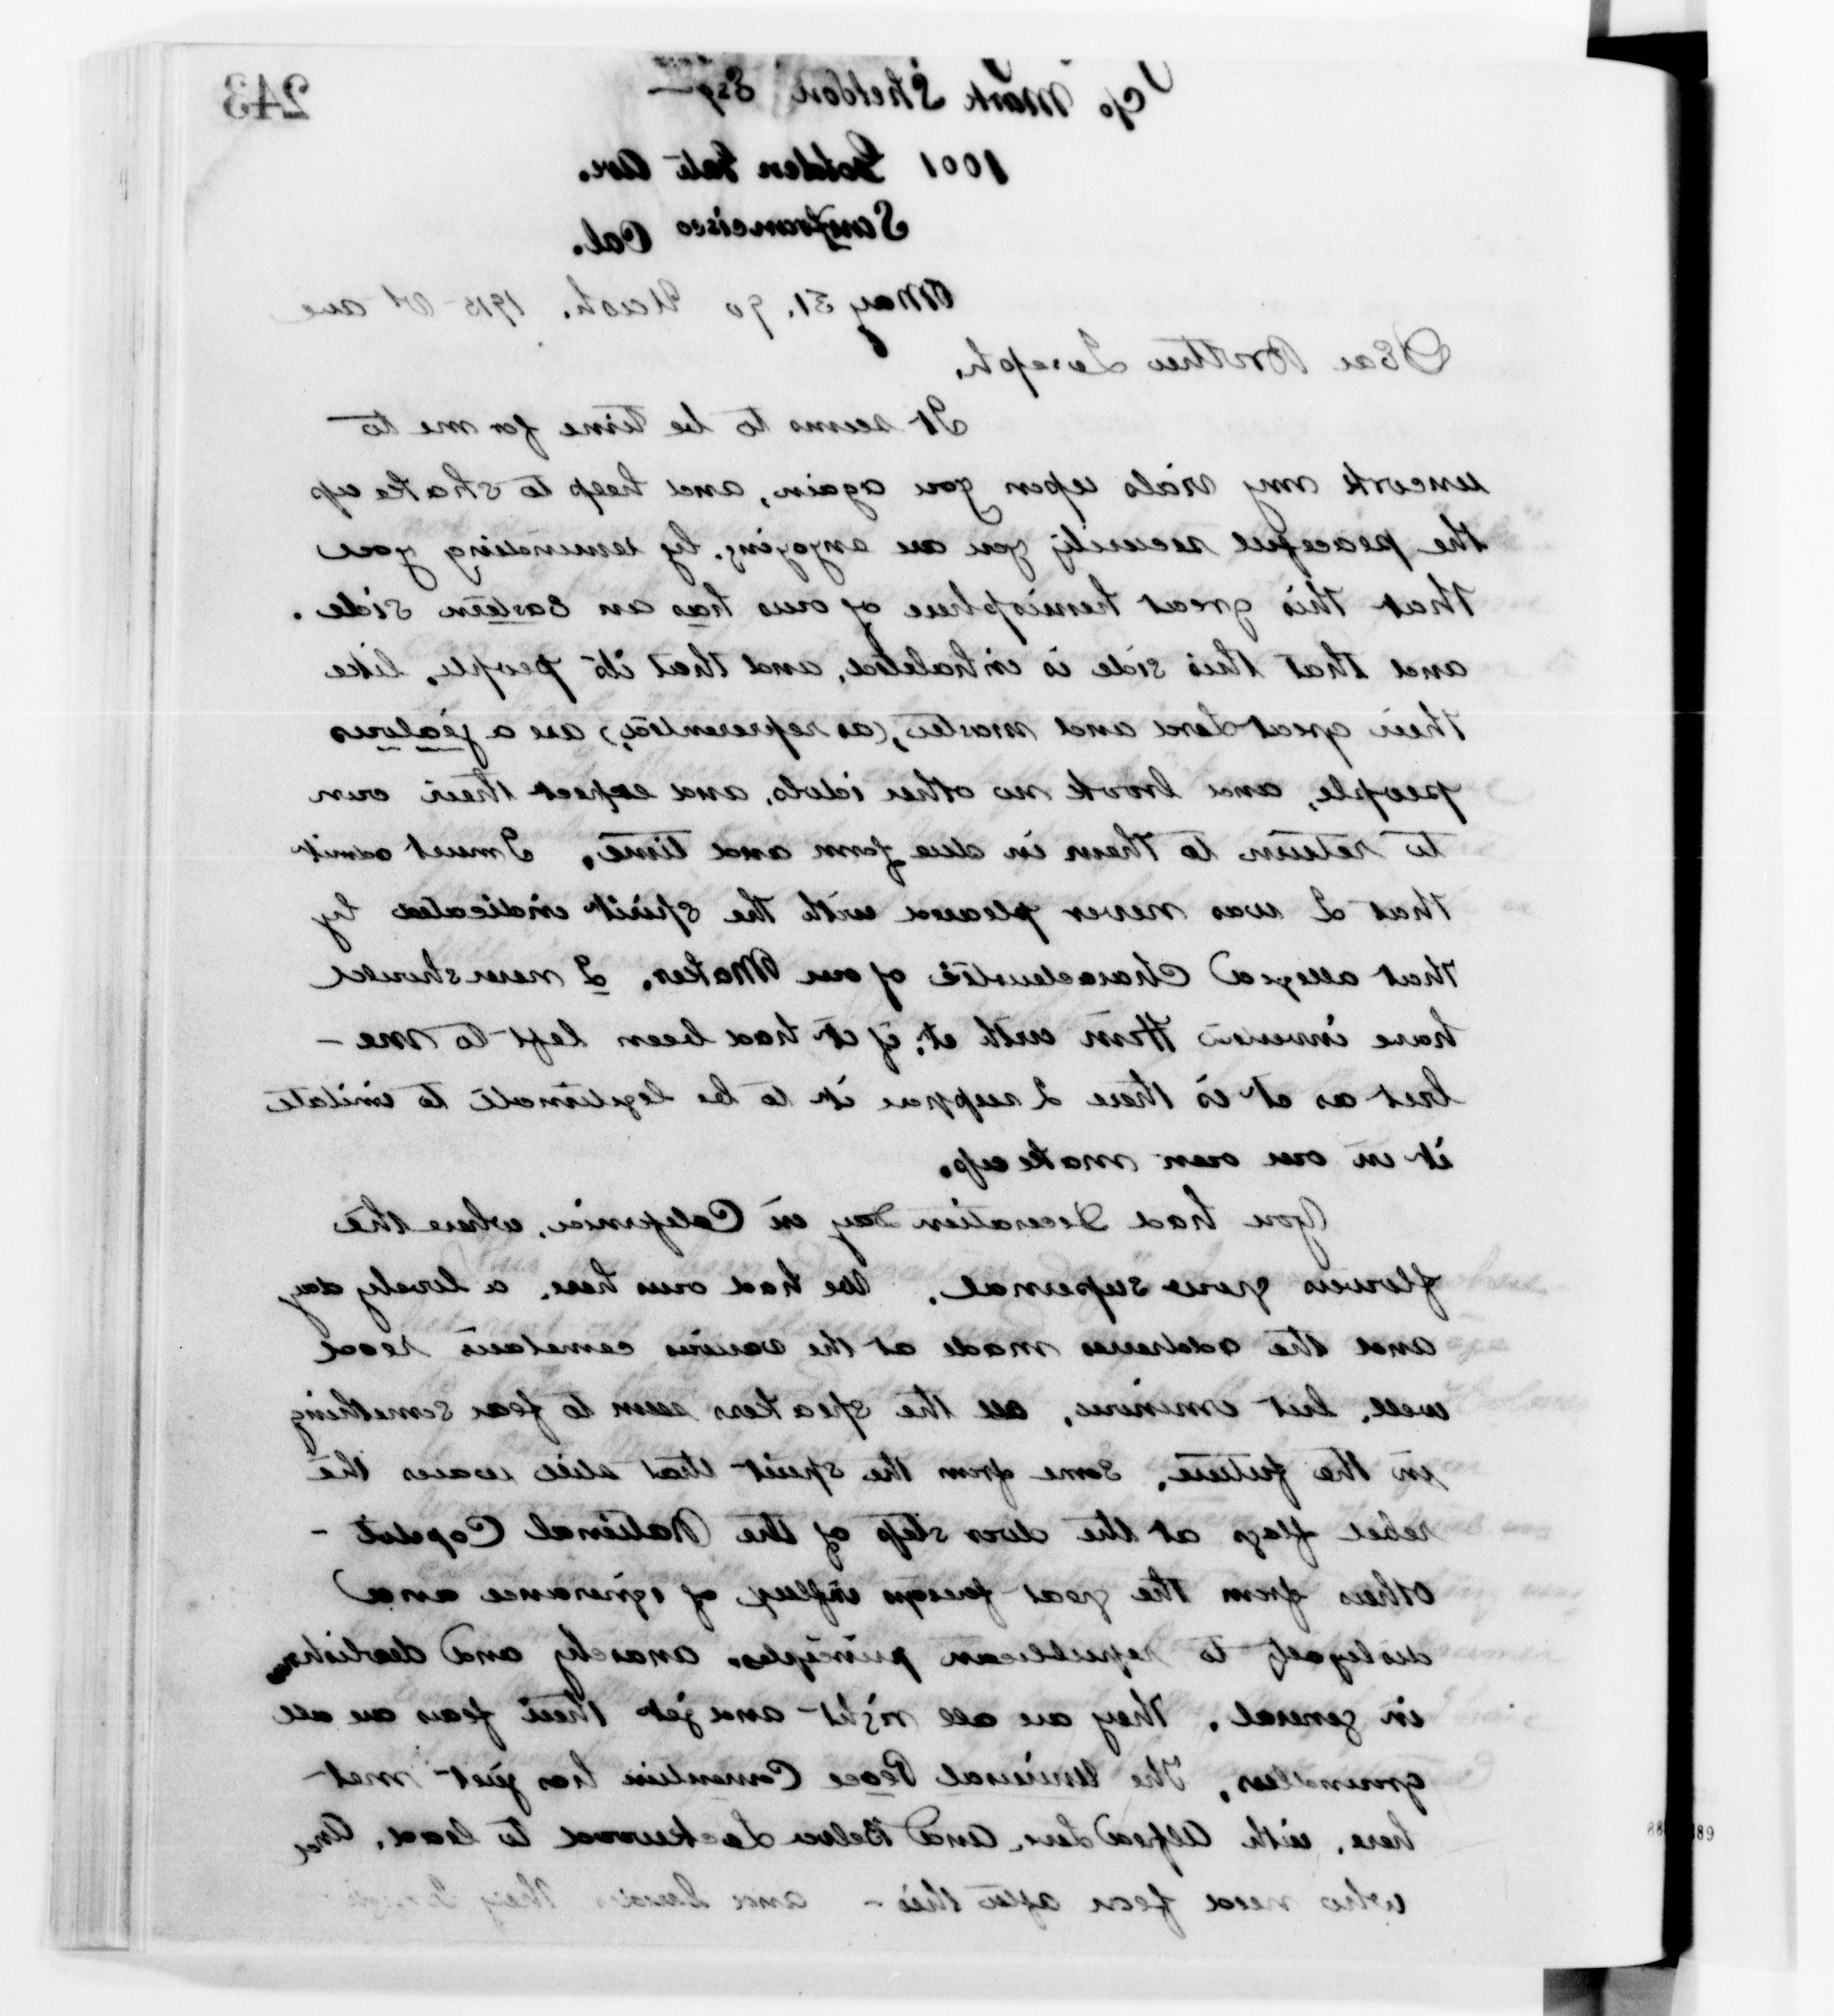 243
c/o Mark Sheldon Esq
1001 Golden Gate Ave.
San francisco Cal.
May 31. 90 Wash. 1915
Dear Brother Joseph,
It seems to be time for me to
uncork my vials upon you again, and help to shake up
the peaceful security you are enjoying, by reminding you
that this great hemisphere of ours has an Eastern side.
and that this side is inhabited, and that its people, like
their great Lord and master, (as represented,) are a jealous
people, and brook no other idols, and expect their own
to return to them in due form and time. I must admit
that I was never pleased with the spirit indicated by
that alleged characteristic of our Maker. I never should
have invested Him with it, if it had been left to me —
but as it is there I suppose it to be legitimate to imitate
it in our own make up.
You had Decoration Day in California, where the
flowers grow supernal. We had ours here, a lovely day
and the addresses made at the various cemeteries read
well, but ominous, all the speakers seem to fear something
in the future. Some from the spirit that still waves the
rebel flags at the door step of the National Capitol —
Others from the great foreign influx of ignorance and
disloyalty to republican principles. anarchy and deviltry
in general. They are all right — and yet their fears are all
groundless. The Universal Peace Convention has just met
here, with Alfred Love and Belva Lockwood to lead, and
who need fear after this — and besides they